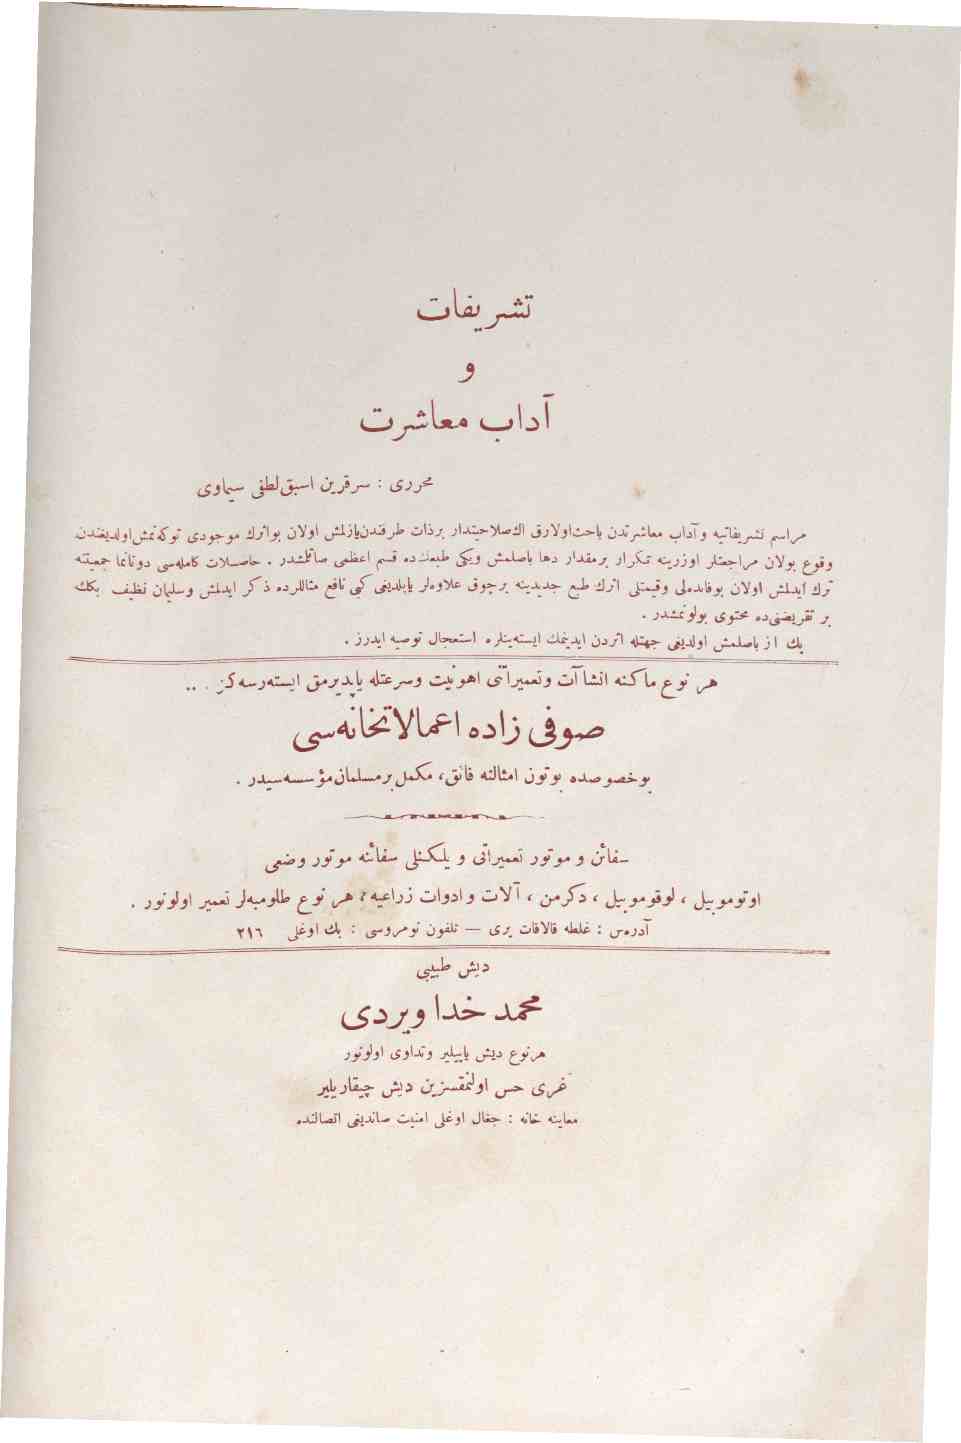 تشریفات
و
آداب معاشرت
محرری : سرقرین اسبق لطفی سیماوی
مراسم تشریفاتیه و آداب معاشرتدن باحث اولارق اك صلاحیتدار برذات طرفندن یازلمش اولان بواثرك موجودی توكه‌نمش اولدیغندن
وقوع بولان مراجعتلر اوزرینه تكرار برمقدار دها باصلمش ویكی طبعنده قسم اعظمی صاتلمشدر . حاصلات كامله‌سی دونانما جمعیتنه
ترك ایدلمش اولان بوفائده‌لی وقیمتلی اثرك طبع جدیدینه برچوق علاوه‌لر یاپلدیغی كبی نافع مثاللرده ذكر ایدلمش وسلیمان نظیف بكك
بر تقریضنی‌ده محتوی بولونمشدر .
پك از باصلمش اولدیغی جهتله اثردن ایدینمك ایسته‌ینلره استعجال توصیه ایدرز .
هر نوع ماكنه انشاآت وتعمیراتنی اهونیت وسرعتله یاپدیرمق ایسته‌رسه‌كز . . .
صوفی زاده اعمالاتخانه‌سی
بوخصوصده بوتون امثالنه فائق، مكمل برمسلمان مؤسسه‌سیدر .
سفائن و موتور تعمیراتی و یلكنلی سفائنه موتور وضعی
اوتوموبیل ، لوقوموبیل ، دكرمن ، آلات و ادوات زراعیه ، هر نوع طلومبه‌لر تعمیر اولونور .
آدره‌س : غلطه قالافات یری — تلفون نومروسی : بك اوغلی ٢١٦
دیش طبیبی
محمد خدا ویردی
هرنوع دیش یاپیلیر وتداوی اولونور
غری حس اولنمقسزین دیش چیقاریلیر
معاینه خانه : جغال اوغلی امنیت صاندیغی اتصالنده